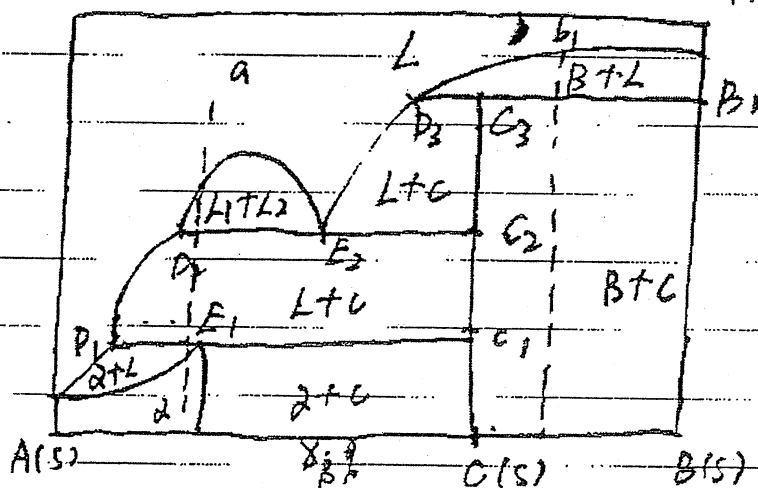 a
L
b₁
B+L
B₁
P₃
C₃
L₁+L₂
L+C
P₂
E₂
C₂
L+C
B+C
P₁
E₁
C₁
2+L
2
2+C
A(S)
C(S)
B(S)